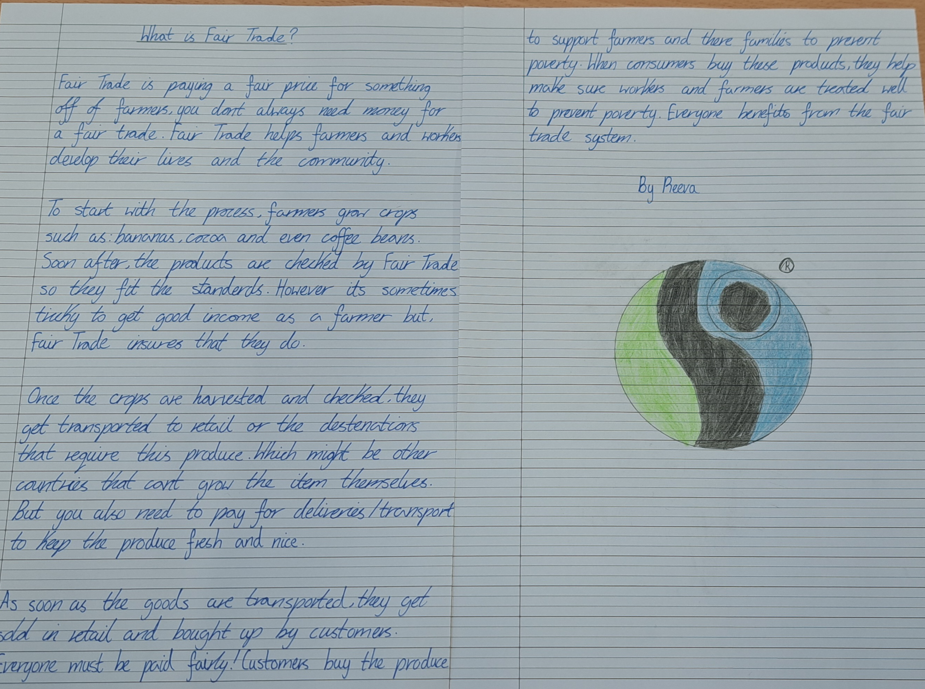 What is Fair Trade?
Fair Trade is paying a fair price for something
off of farmers, you dont always need money for
a fair trade. Fair Trade helps farmers and workers
develop their lives and the community.
To start with the process, farmers grow crops
such as: bananas, cocoa and even coffee beans.
Soon after, the products are checked by Fair Trade
so they fit the standerds. However its sometimes
tricky to get good income as a farmer but,
Fair Trade insures that they do.
Once the crops are harvested and checked, they
get transported to retail or the destenations
that require this produce. Which might be other
countries that cant grow the item themselves.
But you also need to pay for deliveries/transport
to keep the produce fresh and nice.
As soon as the goods are transported, they get
sold in retail and bought up by customers.
Everyone must be paid fairly! Customers buy the produce
to support farmers and there families to prevent
poverty. When consumers buy these products, they help
make sure workers and farmers are treated well
to prevent poverty. Everyone benefits from the fair
trade system.
By Reeva
®